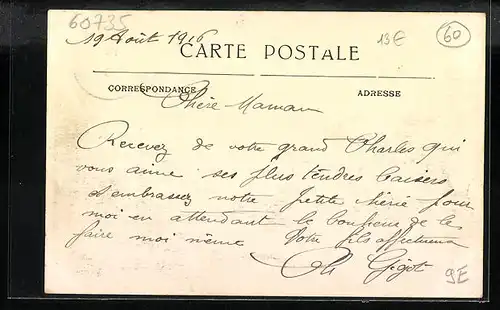 60735
19 Août 1916
13€
60
CARTE POSTALE
CORRESPONDANCE
ADRESSE
Chère Maman
Recevez de votre grand Charles qui
vous aime ses plus tendres baisers
embrassez notre petite Mérie pour
moi en attendant le bonheur de le
faire moi même Votre fils affectueux
Ch Gigot
9E